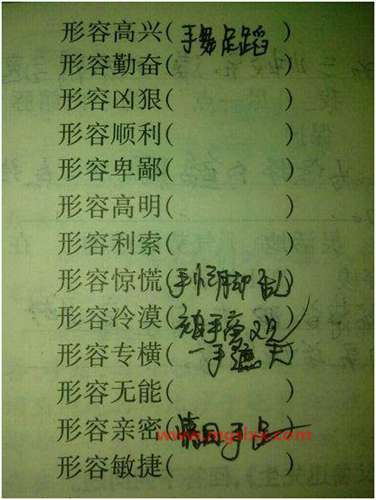 形容高兴(手舞足蹈)
形容勤奋(　　　　)
形容凶狠(　　　　)
形容顺利(　　　　)
形容卑鄙(　　　　)
形容高明(　　　　)
形容利索(　　　　)
形容惊慌(手忙脚乱)
形容冷漠(袖手旁观)
形容专横(一手遮天)
形容无能(　　　　)
形容亲密(情同手足)
形容敏捷(　　　　)